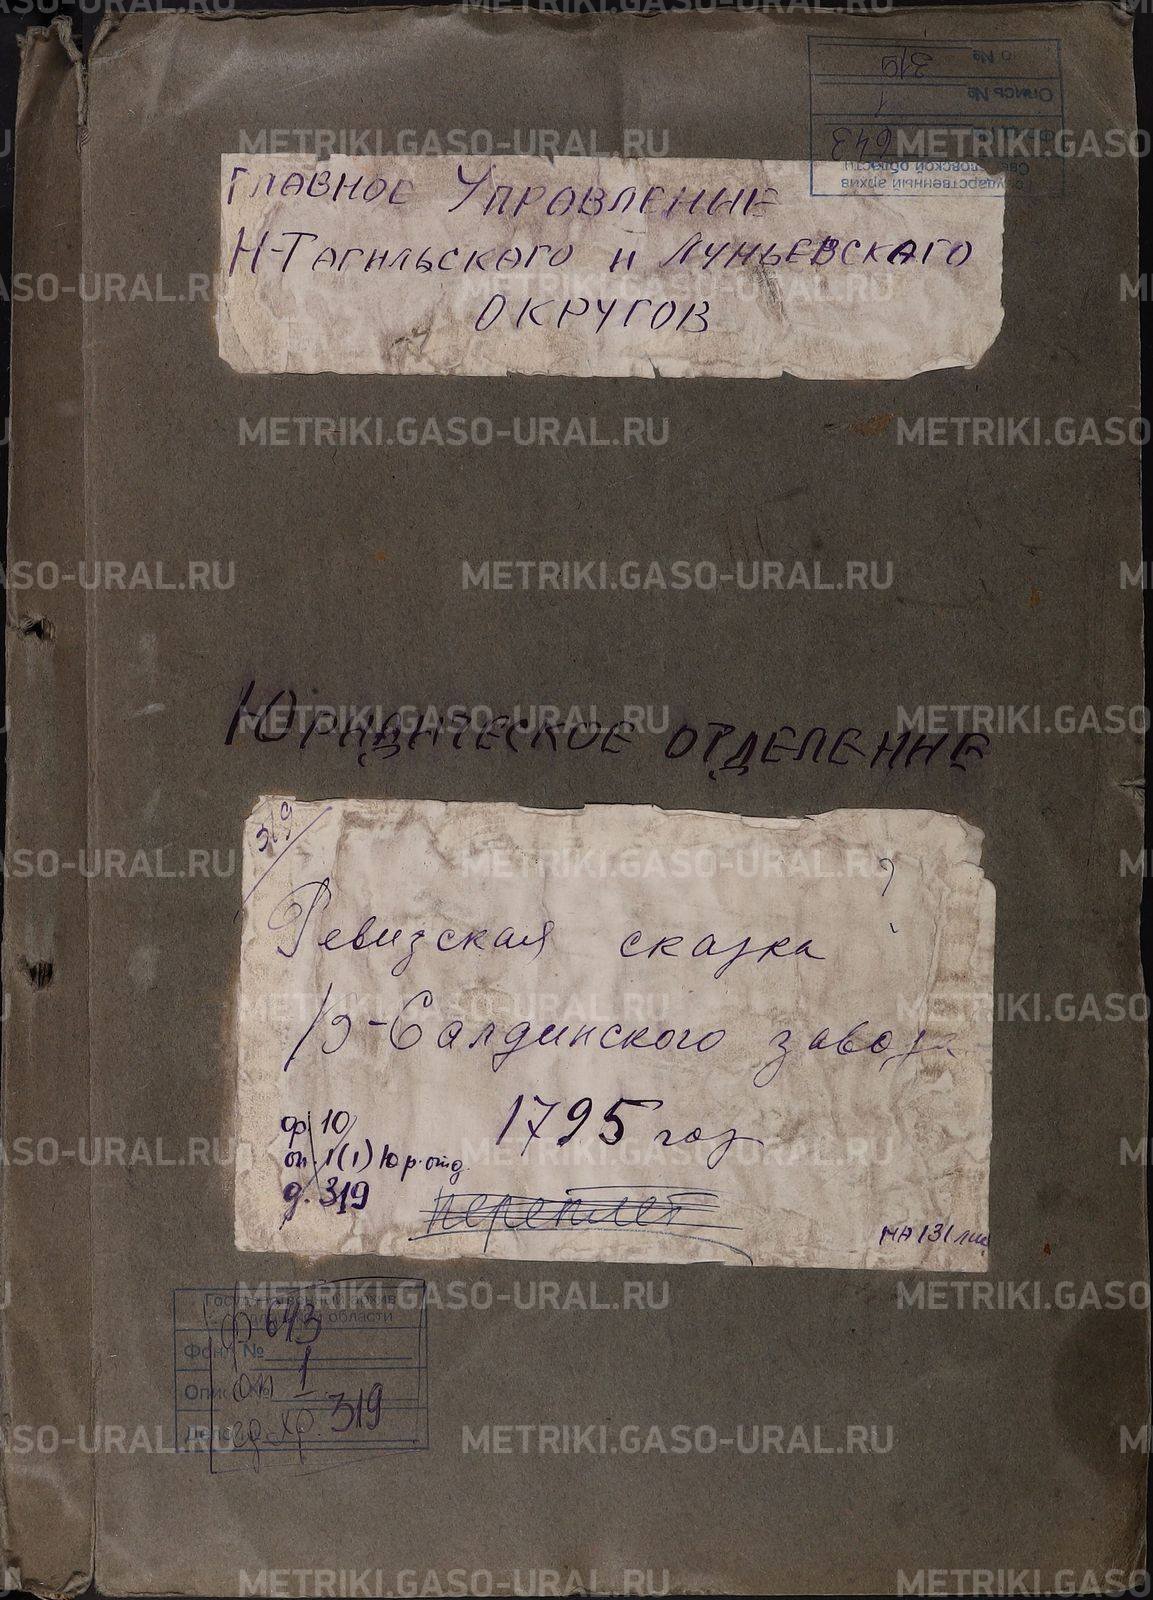 Государственный архив
Свердловской области
Фонд № 643
Опись № 1
319
ГЛАВНОЕ УПРАВЛЕНИЕ
Н-ТАГИЛЬСКАГО И ЛУНЬЕВСКАГО
ОКРУГОВ
ЮРИДИЧЕСКОЕ ОТДЕЛЕНИЕ
319
?
Ревизская сказка
В-Салдинского завода
1795 год
ф. 10
оп. 1(1) Юр. отд.
д. 319
переплет
на 131
Государственный архив
области
Фонд №
ф. 643
оп. 1
ед. хр. 319
METRIKI.GASO-URAL.RU